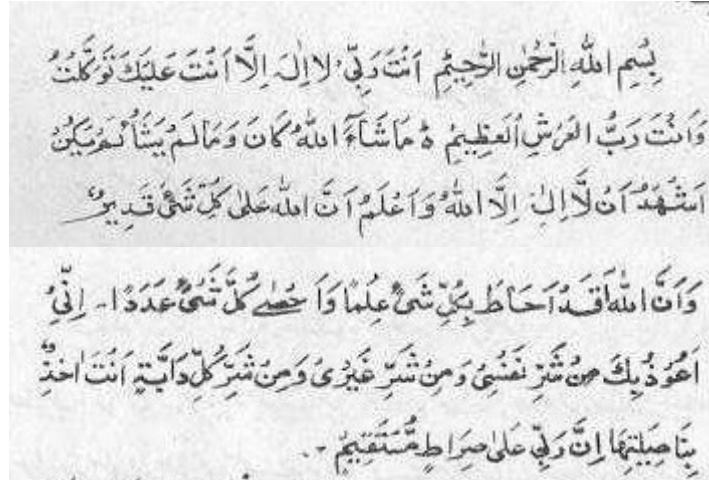 بِسْمِ اللهِ الرَّحْمٰنِ الرَّحِيْمِ اَنْتَ رَبِّيْ لَا اِلٰهَ اِلَّا اَنْتَ عَلَيْكَ تَوَكَّلْتُ
وَاَنْتَ رَبُّ الْعَرْشِ الْعَظِيْمِ ہ مَاشَآءَ اللهُ كَانَ وَمَا لَمْ يَشَأْ لَمْ يَكُنْ
اَشْهَدُ اَنْ لَّا اِلٰهَ اِلَّا اللهُ وَاَعْلَمُ اَنَّ اللهَ عَلٰى كُلِّ شَىْءٍ قَدِيْرٌ
وَاَنَّ اللهَ قَدْ اَحَاطَ بِكُلِّ شَىْءٍ عِلْمًا وَاَحْصٰے كُلَّ شَىْءٍ عَدَدًا۔ اِنِّيْ
اَعُوْذُ بِكَ مِنْ شَرِّ نَفْسِيْ وَمِنْ شَرِّ غَيْرِىْ وَمِنْ شَرِّ كُلِّ دَابَّةٍ اَنْتَ اٰخِذٌ
بِنَاصِيَتِهَا اِنَّ رَبِّيْ عَلٰى صِرَاطٍ مُّسْتَقِيْمٍ ۔